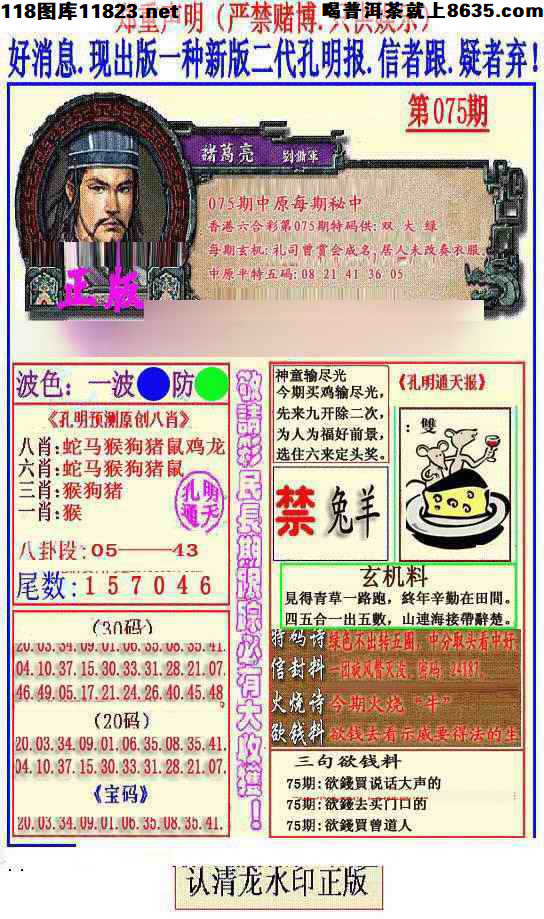 118图库11823.net
喝普洱茶就上8635.com
好消息.现出版一种新版二代孔明报.信者跟.疑者弃!
第075期
諸葛亮 劉備軍
075期中原每期秘中
香港六合彩第075期特码供: 双 大 绿
每期玄机: 礼司曾赏会成名, 居人未改奏衣服
中原平特五码: 08 21 41 36 05
正版
波色: 一波 防
《孔明预测原创八肖》
八肖:蛇马猴狗猪鼠鸡龙
六肖:蛇马猴狗猪鼠
三肖:猴狗猪
一肖:猴
孔明通天
八卦段:05———43
尾数:157046
(30码)
20.03.34.09.01.06.35.08.35.41.
04.10.37.15.30.33.31.28.21.07.
46.49.05.17.21.24.26.40.45.48
(20码)
20.03.34.09.01.06.35.08.35.41.
04.10.37.15.30.33.31.28.21.07.
《宝码》
20.03.34.09.01.06.35.08.35.41.
敬請彩民長期跟踪必有大收獲!
神童输尽光
今期买鸡输尽光,
先来九开除二次,
为人为福好前景,
选住六来定头奖。
《孔明通天报》
: 雙
禁 兔羊
玄机料
見得青草一路跑, 終年辛勤在田間。
四五合一出五數, 山連海接帶辭楚。
特码诗 绿色不出转五圈, 中分取头看中好,
信封料 密码: 24187.
火烧诗 今期火烧“牛”
欲钱料 欲钱去看示威要得法的生
三句欲钱料
75期:欲錢買说话大声的
75期:欲錢去买门口的
75期:欲錢買曾道人
认清龙水印正版